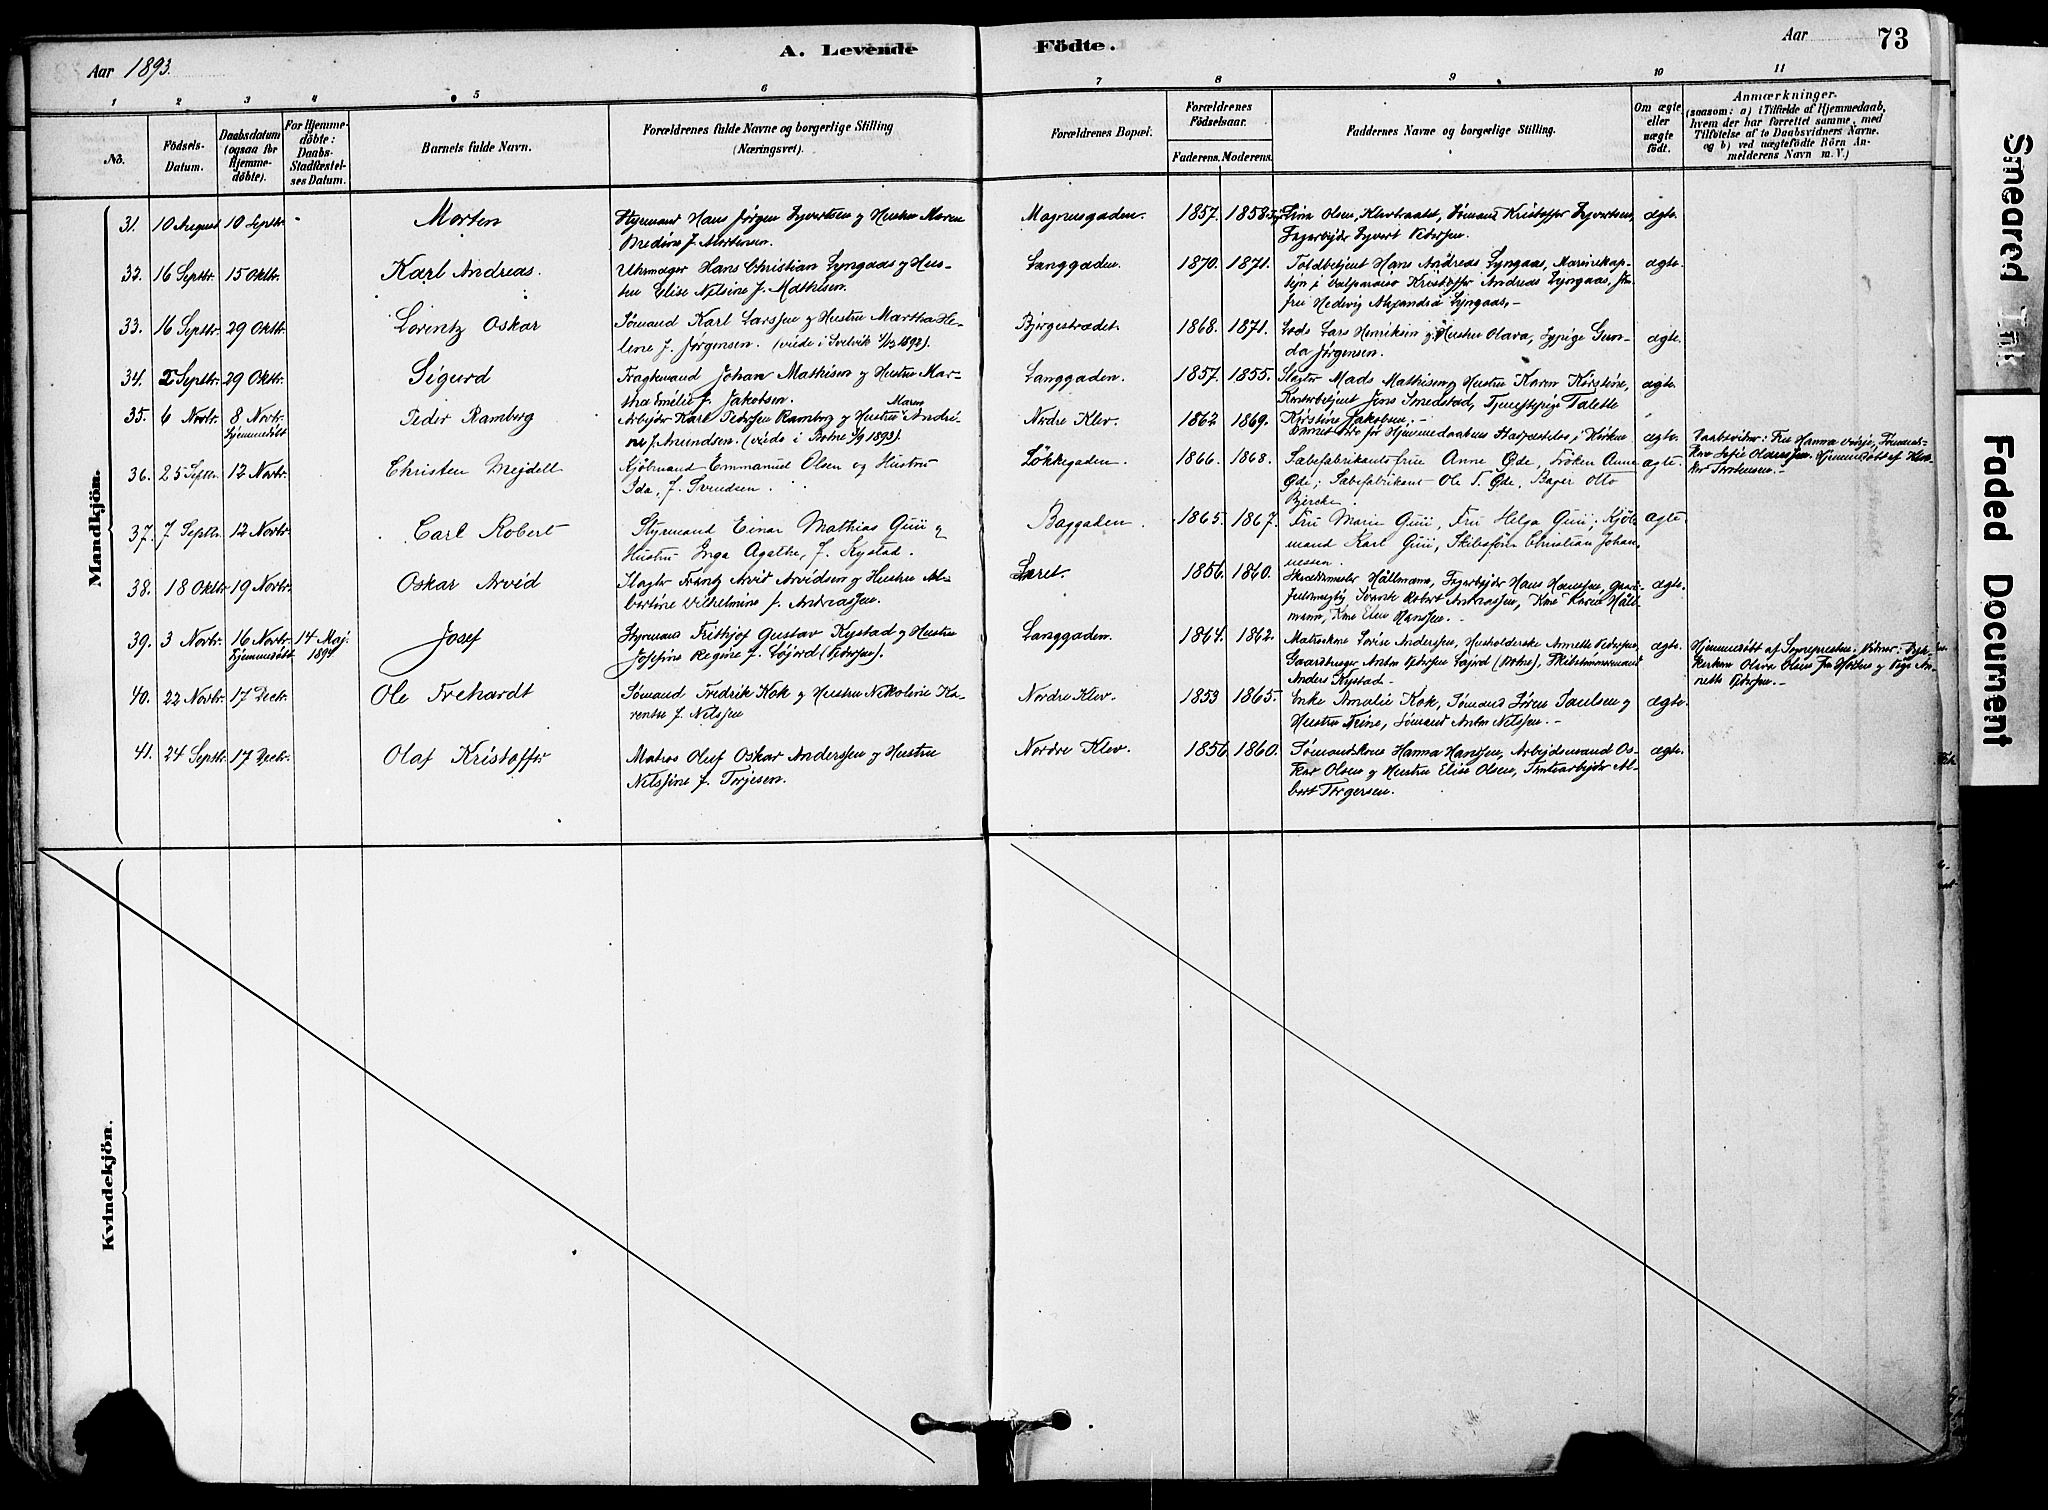 Aar 1893.
A. Levende Födte.
Aar
73
1 2 3 4 5 6 7 8 9 10 11
No.
Födsels-
Datum.
Daabsdatum
(ogsaa for
Hjemme-
döbte).
For Hjemme-
döbte:
Daabs-
Stadfæstel-
ses Datum.
Barnets fulde Navn.
Forældrenes fulde Navne og borgerlige Stilling
(Næringsvei).
Forældrenes Bopæl.
Forældrenes
Födselsaar.
Faderens. Moderens.
Faddernes Navne og borgerlige Stilling.
Om ægte
eller
uægte
födt.
Anmærkninger.
(saasom: a) i Tilfælde af Hjemmedaab,
hvem der har forrettet samme, med
Tilföielse af to Daabsvidners Navne.
og b) ved uægtefödte Börn An-
melderens Navn m. V.)
Mandkjön.
31. 10 August 10 Septbr. Morten
Styrmand Hans Jørgen Syvertsen og Hustru Maren
Medine f. Mortensen.
Magnusgaden. 1857. 1858. Olsen, Sømand Kristoffer Syvertsen,
Syvert Pedersen.
ægte.
32. 16 Septbr. 15 Oktbr. Karl Andreas.
Uhrmager Hans Christian Lyngaas og Hus-
tru Elise Nilsine f. Mathisen.
Langgaden. 1870. 1871. Toldbetjent Hans Andreas Lyngaas, Marinekap-
tejn i Valparaiso Kristoffer Andreas Lyngaas, Jom-
fru Hedvig Alexandra Lyngaas.-
ægte.
33. 16 Septbr. 29 Oktbr. Lorentz Oskar
Sømand Karl Larssen og Hustru Martha He-
lene f. Jørgensen. (viede i Svelvik 1892).
Bjergestrædet. 1868. 1871. Lods Lars Henriksen og Hustru Olava, Sypige Gun-
da Jørgensen.
ægte.
34. 2 Septbr. 29 Oktbr. Sigurd
Fragtemand Johan Mathisen og Hustru Mar-
tha Emelie f. Jakobsen.
Langgaden. 1857. 1855. Slagter Mads Mathisen og Hustru Karen Kirstine,
Jens Smedstad, Tjenestepige Talette
Kirstine Jakobsen.-
ægte.
35. 6 Novbr. 8 Novbr.
Hjemmedöbt
Peder Ramberg
Arbejder Karl Pedersen Ramberg og Hustru Maren Andri-
ne f. Amundsen. (viede i Botne 1893).
Nordre Klev. 1862 1869. for Hjemmedaabens Stadfæstelse i Kirken
ægte.
Daabsvidner: Fru Hanna
Sofie Hjemmedöbt af
36. 25 Septbr. 12 Novbr. Christen Mejdell
Kjöbmand Emmanuel Olsen og Hustru
Ida, f. Svendsen.
Løkkegaden. 1866. 1868. Sæbefabrikantfrue Anne Øde, Frøken Anne
Øde; Sæbefabrikant Ole T. Øde, Bager Otto
Bjercke.
ægte.
37. 7 Septbr. 12 Novbr. Carl Robert
Styrmand Einar Mathias Guii og
Hustru Inga Agathe, f. Kystad.
Baggaden. 1865. 1867. Fru Marie Guii, Fru Helga Guii; Kjöb-
mand Karl Guii, Skibsförer Christian Johan-
nessen.
ægte.
38. 18 Oktbr. 19 Novbr. Oskar Arvid
Slagter Frantz Arvid Arvidsen og Hustru Al-
bertine Vilhelmine f. Andreassen.
1856. 1860. Skrædermester Hållmann, Hans Hanssen,
Robert Andreassen, Kone Karen Håll-
mann, Kone Elen Hanssen.-
ægte.
39. 3 Novbr. 16 Novbr.
Hjemmedöbt
14 Maj:
1894
Josef
Styrmand Frithjof Gustav Kystad og Hustru
Josefine Regine f. Løjord (Pedersen).
Langgaden. 1864. 1862. Lovise Andersen, Husholderske Annette Pedersen,
Gaardbruger Anton Pedersen Løjord (Botne), Skibstømmermand
Anders Kystad.-
ægte.
Hjemmedöbt af Sognepresten. Vidner:
Olava Olsen Pige An-
nette Pedersen.-
40. 22 Novbr. 17 Decbr. Ole Trehardt
Sømand Fredrik Kok og Hustru Nikoline Ka-
rentse f. Nilssen
Nordre Klev. 1853 1865. Enke Amalie Kok, Sømand Søren Paulsen og
Hustru Trine, Sømand Anton Nilssen.-
ægte.
41. 24 Septbr. 17 Decbr. Olaf Kristoffer
Matros Oluf Oskar Anderssen og Hustru
Nilssine f. Torjesen.
Nordre Klev. 1856 1860. Sømandskone Hanna Hanssen, Arbejdsmand Os-
kar Olsen og Hustru Elise Olsen, Al-
bert Torgersen.
ægte.
Kvindekjön.
Smeared Ink
Faded Document